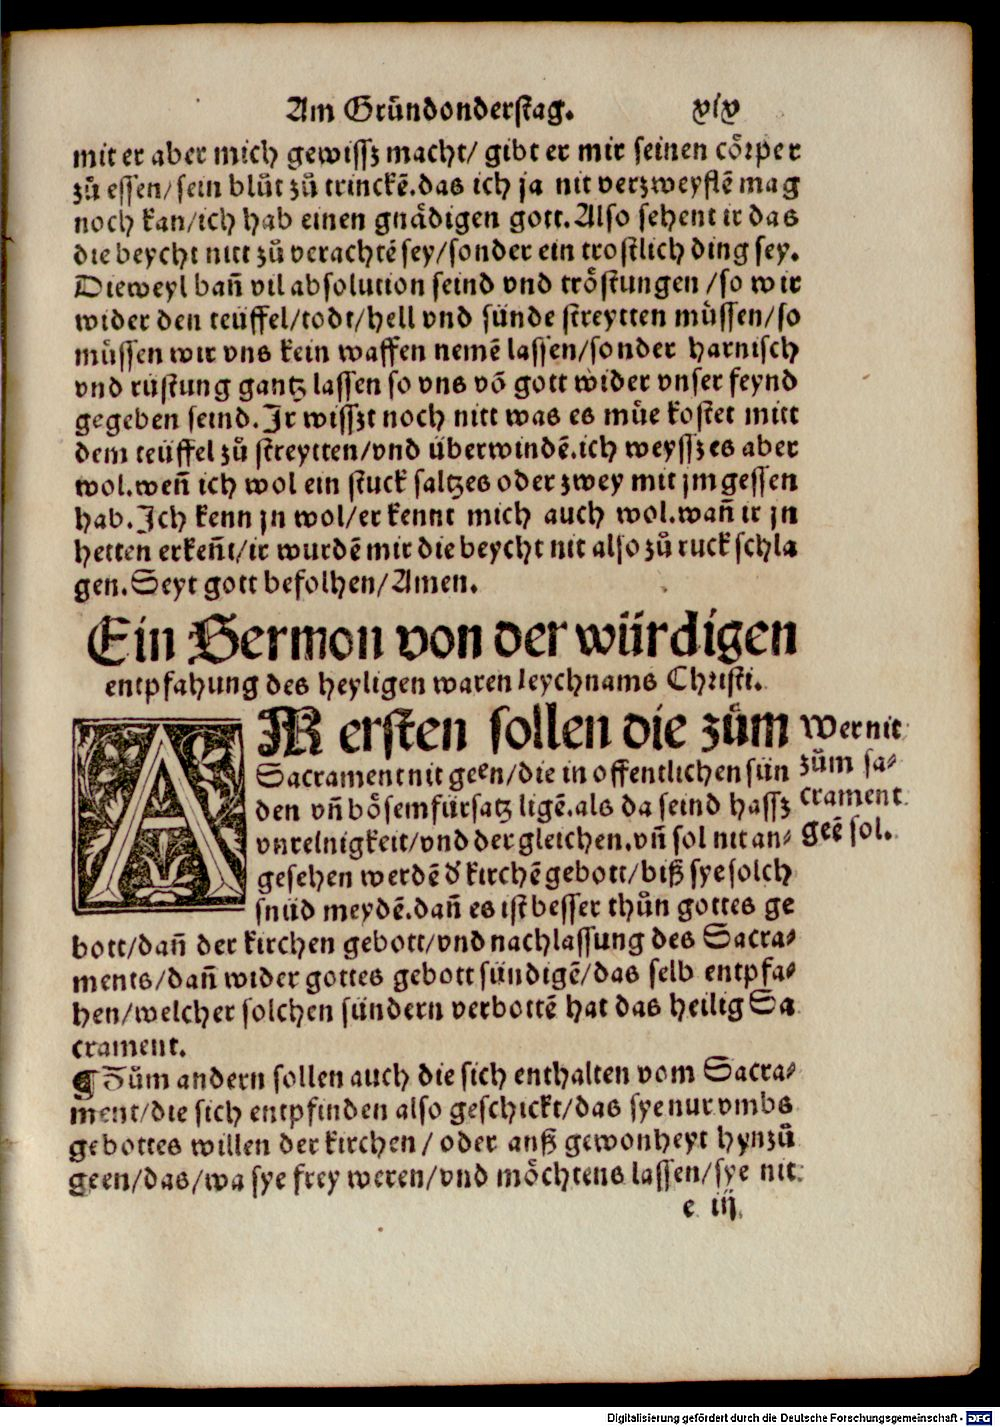 Am Gründonderstag. xix
mit er aber mich gewissz macht/ gibt er mir seinen cörper
zů essen/sein blůt zů trinckē.das ich ja nit verzweyflē mag
noch kan/ich hab einen gnädigen gott.Also sehent ir das
die beycht nitt zů verachtē sey/sonder ein trostlich ding sey.
Dieweyl dañ vil absolution seind vnd tröstungen /so wir
wider den teüffel/todt/hell vnd sünde streytten müssen/so
müssen wir vns kein waffen nemē lassen/sonder harnisch
vnd rüstung gantz lassen so vns vō gott wider vnser feynd
gegeben seind.Ir wisszt noch nitt was es müe kostet mitt
dem teüffel zů streytten/vnd überwindē.ich weyssz es aber
wol.weñ ich wol ein stuck saltzes oder zwey mit jm gessen
hab.Ich kenn jn wol/er kennt mich auch wol.wañ ir jn
hetten erkeñt/ir wurdē mir die beycht nit also zů ruck schla
gen.Seyt gott befolhen/Amen.
Ein Sermon von der würdigen
entpfahung des heyligen waren leychnams Christi.
AM ersten sollen die zům
Sacrament nit geen/die in offentlichen sün
den vñ bösem fürsatz ligē.als da seind hassz
vnreinigkeit/vnd der gleichen.vñ sol nit an-
gesehen werdē d' kirchē gebott/biß sye solch
snüd meydē.dañ es ist besser thůn gottes ge
bott/dañ der kirchen gebott/vnd nachlassung des Sacra-
ments/dañ wider gottes gebott sündigē/das selb entpfa-
hen/welcher solchen sündern verbottē hat das heilig Sa
crament.
¶Zům andern sollen auch die sich enthalten vom Sacra-
ment/die sich entpfinden also geschickt/das sye nur vmbs
gebottes willen der kirchen/ oder auß gewonheyt hynzů
geen/das/wa sye frey weren/vnd möchtens lassen/sye nit
e iij
Wer nit
zům sa-
crament
geē sol.
Digitalisierung gefördert durch die Deutsche Forschungsgemeinschaft - DFG